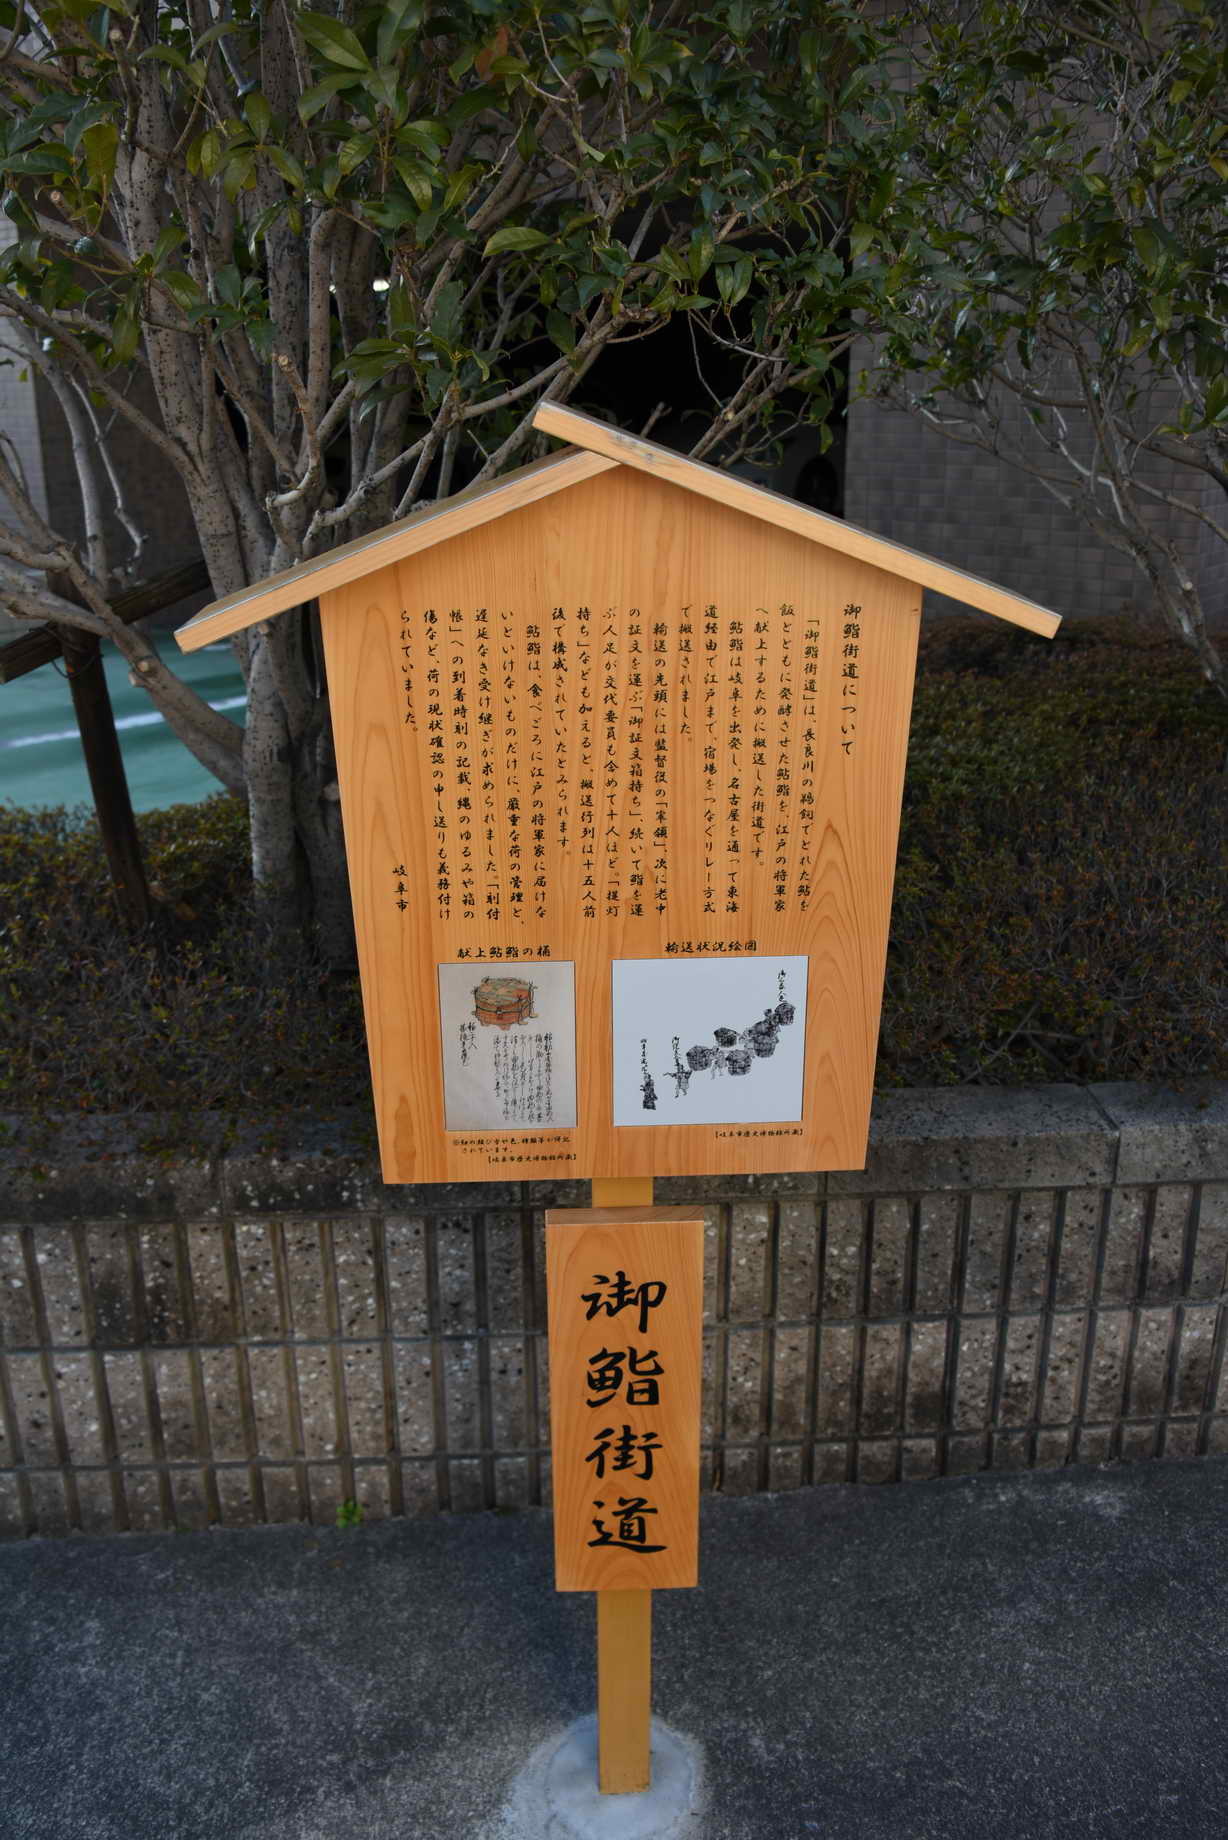 御鮨街道について
「御鮨街道」は、長良川の鵜飼でとれた鮎を
飯とともに発酵させた鮎鮨を、江戸の将軍家
へ献上するために搬送した街道です。
鮎鮨は岐阜を出発し、名古屋を通って東海
道経由で江戸まで、宿場をつなぐリレー方式
で搬送されました。
輸送の先頭には監督役の「宰領」、次に老中
の証文を運ぶ「御証文箱持ち」、続いて鮨を運
ぶ人足が交代要員も含めて十人ほど。「提灯
持ち」なども加えると、搬送行列は十五人前
後で構成されていたとみられます。
鮎鮨は、食べごろに江戸の将軍家に届けな
いといけないものだけに、厳重な荷の管理と、
遅延なき受け継ぎが求められました。「刻付
帳」への到着時刻の記載、縄のゆるみや箱の
傷など、荷の現状確認の申し送りも義務付け
られていました。
岐阜市
輸送状況絵図
【岐阜市歴史博物館所蔵】
献上鮎鮨の桶
※紐の結び方や色、種類等が併記
されています。
【岐阜市歴史博物館所蔵】
御鮨街道